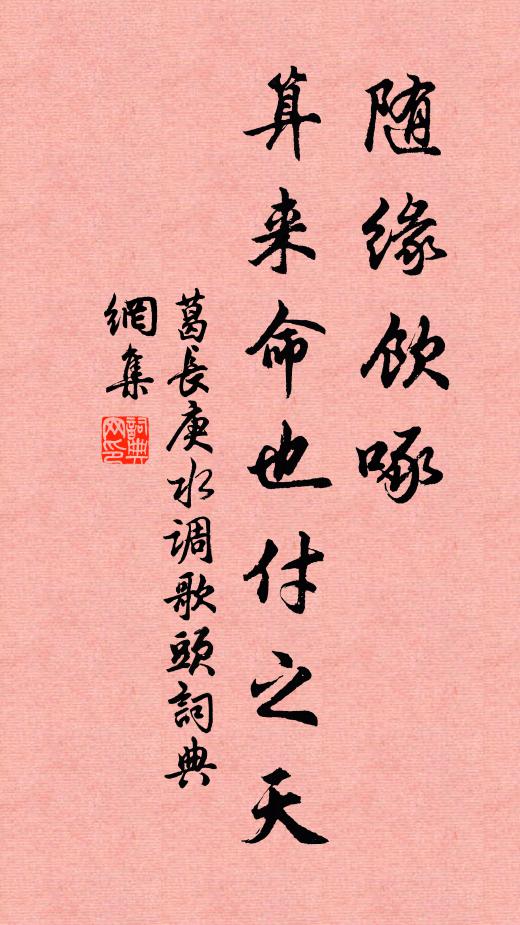 随缘饮啄
算来命也付之天
葛長庚水调歌頭詞典
網集
詞典
网印